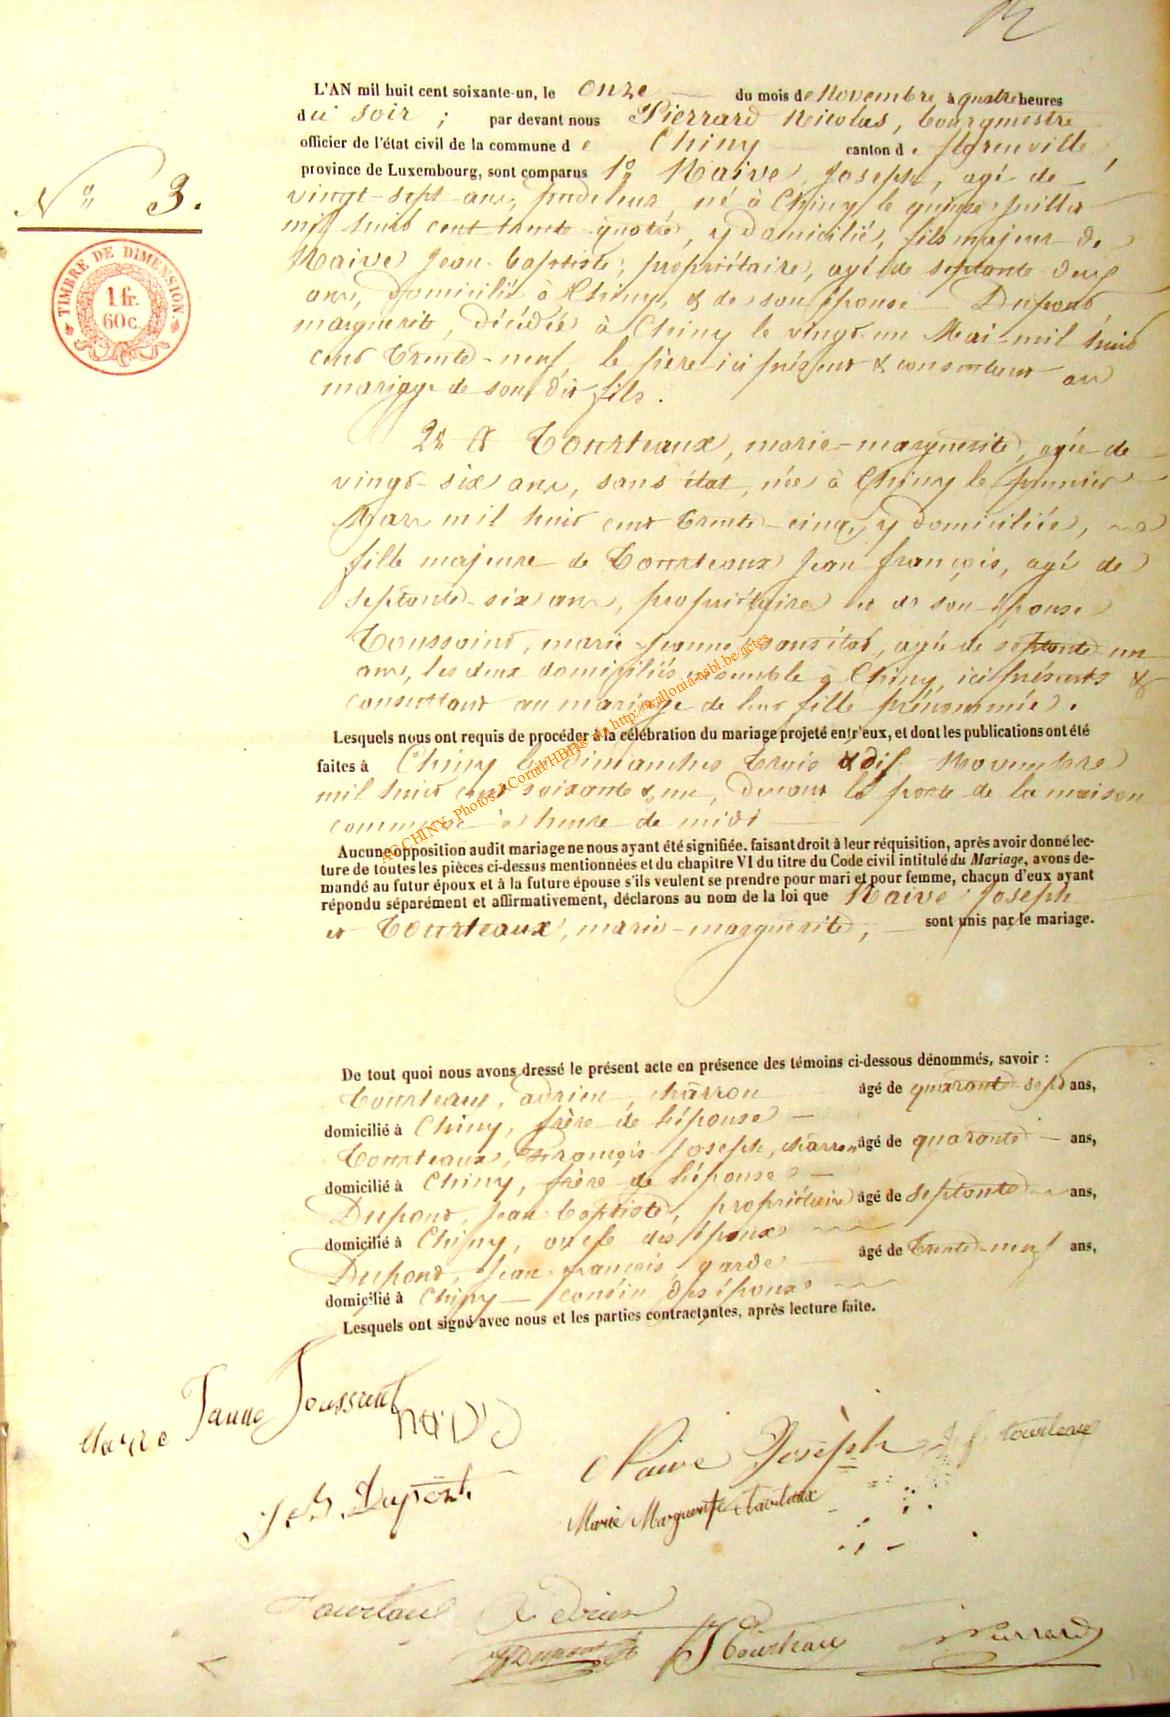 N° 3.
TIMBRE DE DIMENSION
1 fr.
60 c.
L'AN mil huit cent soixante-un, le onze du mois de Novembre à quatre heures
du soir ; par devant nous Pierrard Nicolas, bourgmestre
officier de l'état civil de la commune de Chiny canton de florenville,
province de Luxembourg, sont comparus 1° Naive Joseph, agé de
vingt-sept ans, né à Chiny le quinze juillet
mil huit cent trente-quatre, y domicilié, fils majeur de
Naive Jean-baptiste, propriétaire, agé de septante deux
ans, domicilié à Chiny, & de son épouse Dupond
marguerite, décédée à Chiny le vingt-un Mai mil huit
cent trente-neuf, le père ici présent & consentant au
mariage de son dit fils.
2° & Tourteaux, marie-marguerite, agée de
vingt-six ans, sans état, née à Chiny le premier
Mars mil huit cent trente-cinq, y domiciliée,
fille majeure de Tourteaux Jean françois, agé de
septante-six ans, propriétaire et de son épouse
Toussaint, marie-jeanne, sans état, agée de septante un
ans, les deux domiciliés ensemble à Chiny, ici présents &
consentant au mariage de leur fille prénommée.
Lesquels nous ont requis de procéder à la célébration du mariage projeté entr'eux, et dont les publications ont été
faites à Chiny les dimanches trois & dix Novembre
mil huit cent soixante & un, devant la porte de la maison
commune à heure de midi
Aucune opposition audit mariage ne nous ayant été signifiée. faisant droit à leur réquisition, après avoir donné lec-
ture de toutes les pièces ci-dessus mentionnées et du chapitre VI du titre du Code civil intitulé du Mariage, avons de-
mandé au futur époux et à la future épouse s'ils veulent se prendre pour mari et pour femme, chacun d'eux ayant
répondu séparément et affirmativement, déclarons au nom de la loi que Naive Joseph
et Tourteaux, marie-marguerite, sont unis par le mariage.
De tout quoi nous avons dressé le présent acte en présence des témoins ci-dessous dénommés, savoir :
Tourteaux, adrien, charron âgé de quarante-sept ans,
domicilié à Chiny, frère de l'épouse
Tourteaux, François Joseph, charron âgé de quarante ans,
domicilié à Chiny, frère de l'épouse
Dupond, jean baptiste, propriétaire âgé de septante ans,
domicilié à Chiny, oncle des époux
Dupond, jean françois, garde âgé de trente-neuf ans,
domicilié à Chiny cousin des époux
Lesquels ont signé avec nous et les parties contractantes, après lecture faite.
Marie Janne Toussaint
naive
Naive Josèph
J f tourteaux
J. B. Dupont
Marie Marguerite Tourteaux
Tourtau Adrien
Dupont
Tourteau
N Pierrard
AC CHINY, Photos J.Cornil/HBHC on http://wallonia-asbl.be/actes